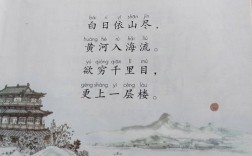 bái rì yī shān jìn
白日依山尽，
huáng hé rù hǎi liú
黄河入海流。
yù qióng qiān lǐ mù
欲穷千里目，
gèng shàng yì céng lóu
更上一层楼。